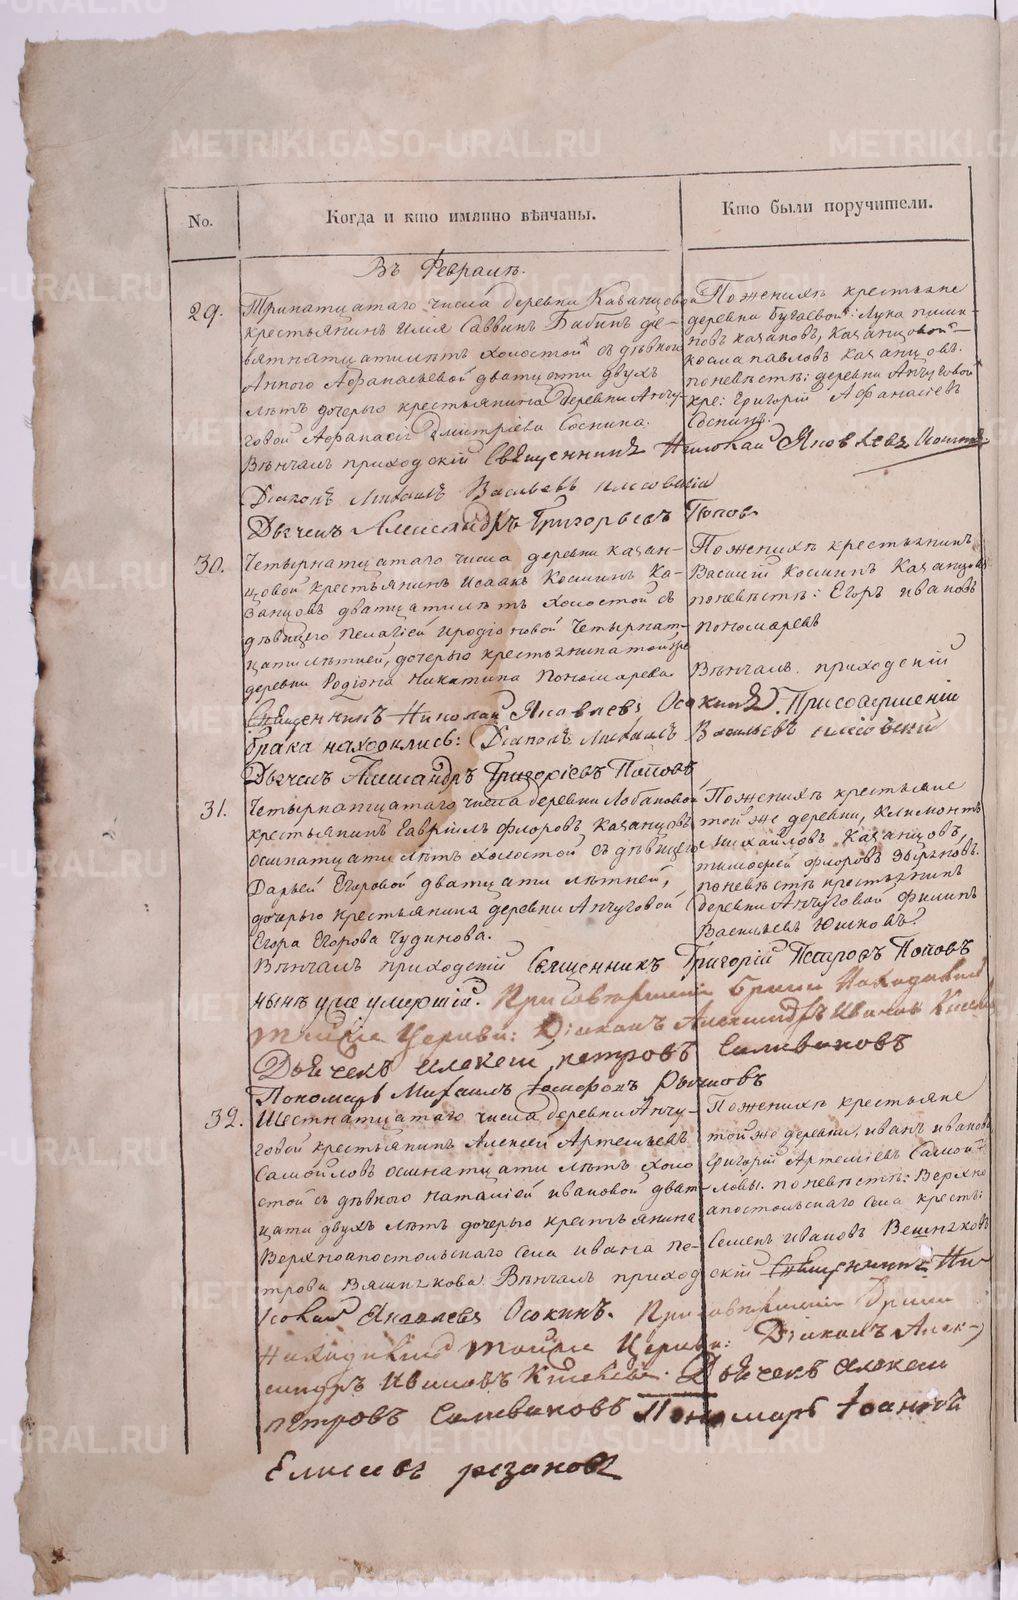 METRIKI.GASO-URAL.RU
No.
Когда и кто имянно вѣнчаны.
Кто были поручители.
Въ Февралѣ.
29.
Тринатцатаго числа деревни Казанцовой
крестьянинъ Илія Саввинъ Бабинъ де-
вятнатцатилѣтъ холостой съ дѣвкою
Анною Афанасьевой дватцати двухъ
лѣтъ дочерью крестьянина деревни Анчу-
говой Афанасія Дмитріева Соснина.
Вѣнчалъ приходскій Священникъ Николай Яковлевъ Осокинъ
Діаконъ Михаилъ Васильевъ
Дьячекъ Александръ Григорьевъ Поповъ
Поженихѣ крестьяне
деревни Бугаевой: Лука
Казанцовой
косма павловъ казанцовъ.
поневѣстѣ: деревни Анчуговой
кре: григорій Афанасіевъ
Соснинъ.
30.
Четырнатцатаго числа деревни казан-
цовой крестьянинъ Исаакъ Косминъ Ка-
занцовъ дватцатилѣтъ холостой съ
дѣвицею Пелагіей Иродіоновой Четырнат-
цатилѣтней, дочерью крестьянина той же
деревни Родіона Никитина Пономарева.
Поженихѣ крестьянинъ
Василій Косминъ Казанцовъ
поневѣстѣ: Егоръ ивановъ
пономаревъ
Вѣнчалъ приходскій
Священникъ Николай Яковлевъ Осокинъ. Присовершеніи
брака находились: Діаконъ Михаилъ Васильевъ
Дьячекъ Александръ Григоріевъ Поповъ
31.
Четырнатцатаго числа деревни Лобановой
крестьянинъ Гавріилъ флоровъ Казанцовъ
осмнатцати лѣтъ холостой съ дѣвицею
Дарьей Егоровой дватцати лѣтней,
дочерью крестьянина деревни Анчуговой
Егора Егорова Чудинова.
Вѣнчалъ приходскій Священникъ Григорій Петровъ Поповъ
нынѣ уже умершій. Присовершеніи брака находились
тойже Церкви: Діаконъ Александръ Ивановъ
Дьячекъ Алексей петровъ Селивановъ
Пономарь Михаилъ
Поженихѣ крестьяне
той же деревни, климонтъ
Михайловъ Казанцовъ,
тимофей флоровъ
поневѣстѣ крестьянинъ
деревни Анчуговой филипъ
Васильевъ Юшковъ.
32.
Шестнатцатаго числа деревни Анчу-
говой крестьянинъ Алексей Артемьевъ
Самойловъ осмнатцати лѣтъ холо
стой съ дѣвкою Наталіей ивановой дват-
цати двухъ лѣтъ дочерью крестьянина
Верхноапостольскаго села ивана пе-
трова Вѣнчалъ приходскій Священникъ Ни
колай Яковлевъ Осокинъ. Присовершеніи Брака
Находились тойже Церкви: Діаконъ Алек-
сандръ Ивановъ Дьячекъ Алексей
петровъ Селивановъ Пономарь Іоаннъ
Елисеевъ рязановъ
Поженихѣ крестьяне
той же деревни, иванъ ивановъ
григорій Артеміевъ Самой-
ловы. поневѣстѣ: Верхно
апостольскаго села кресть:
Семенъ ивановъ